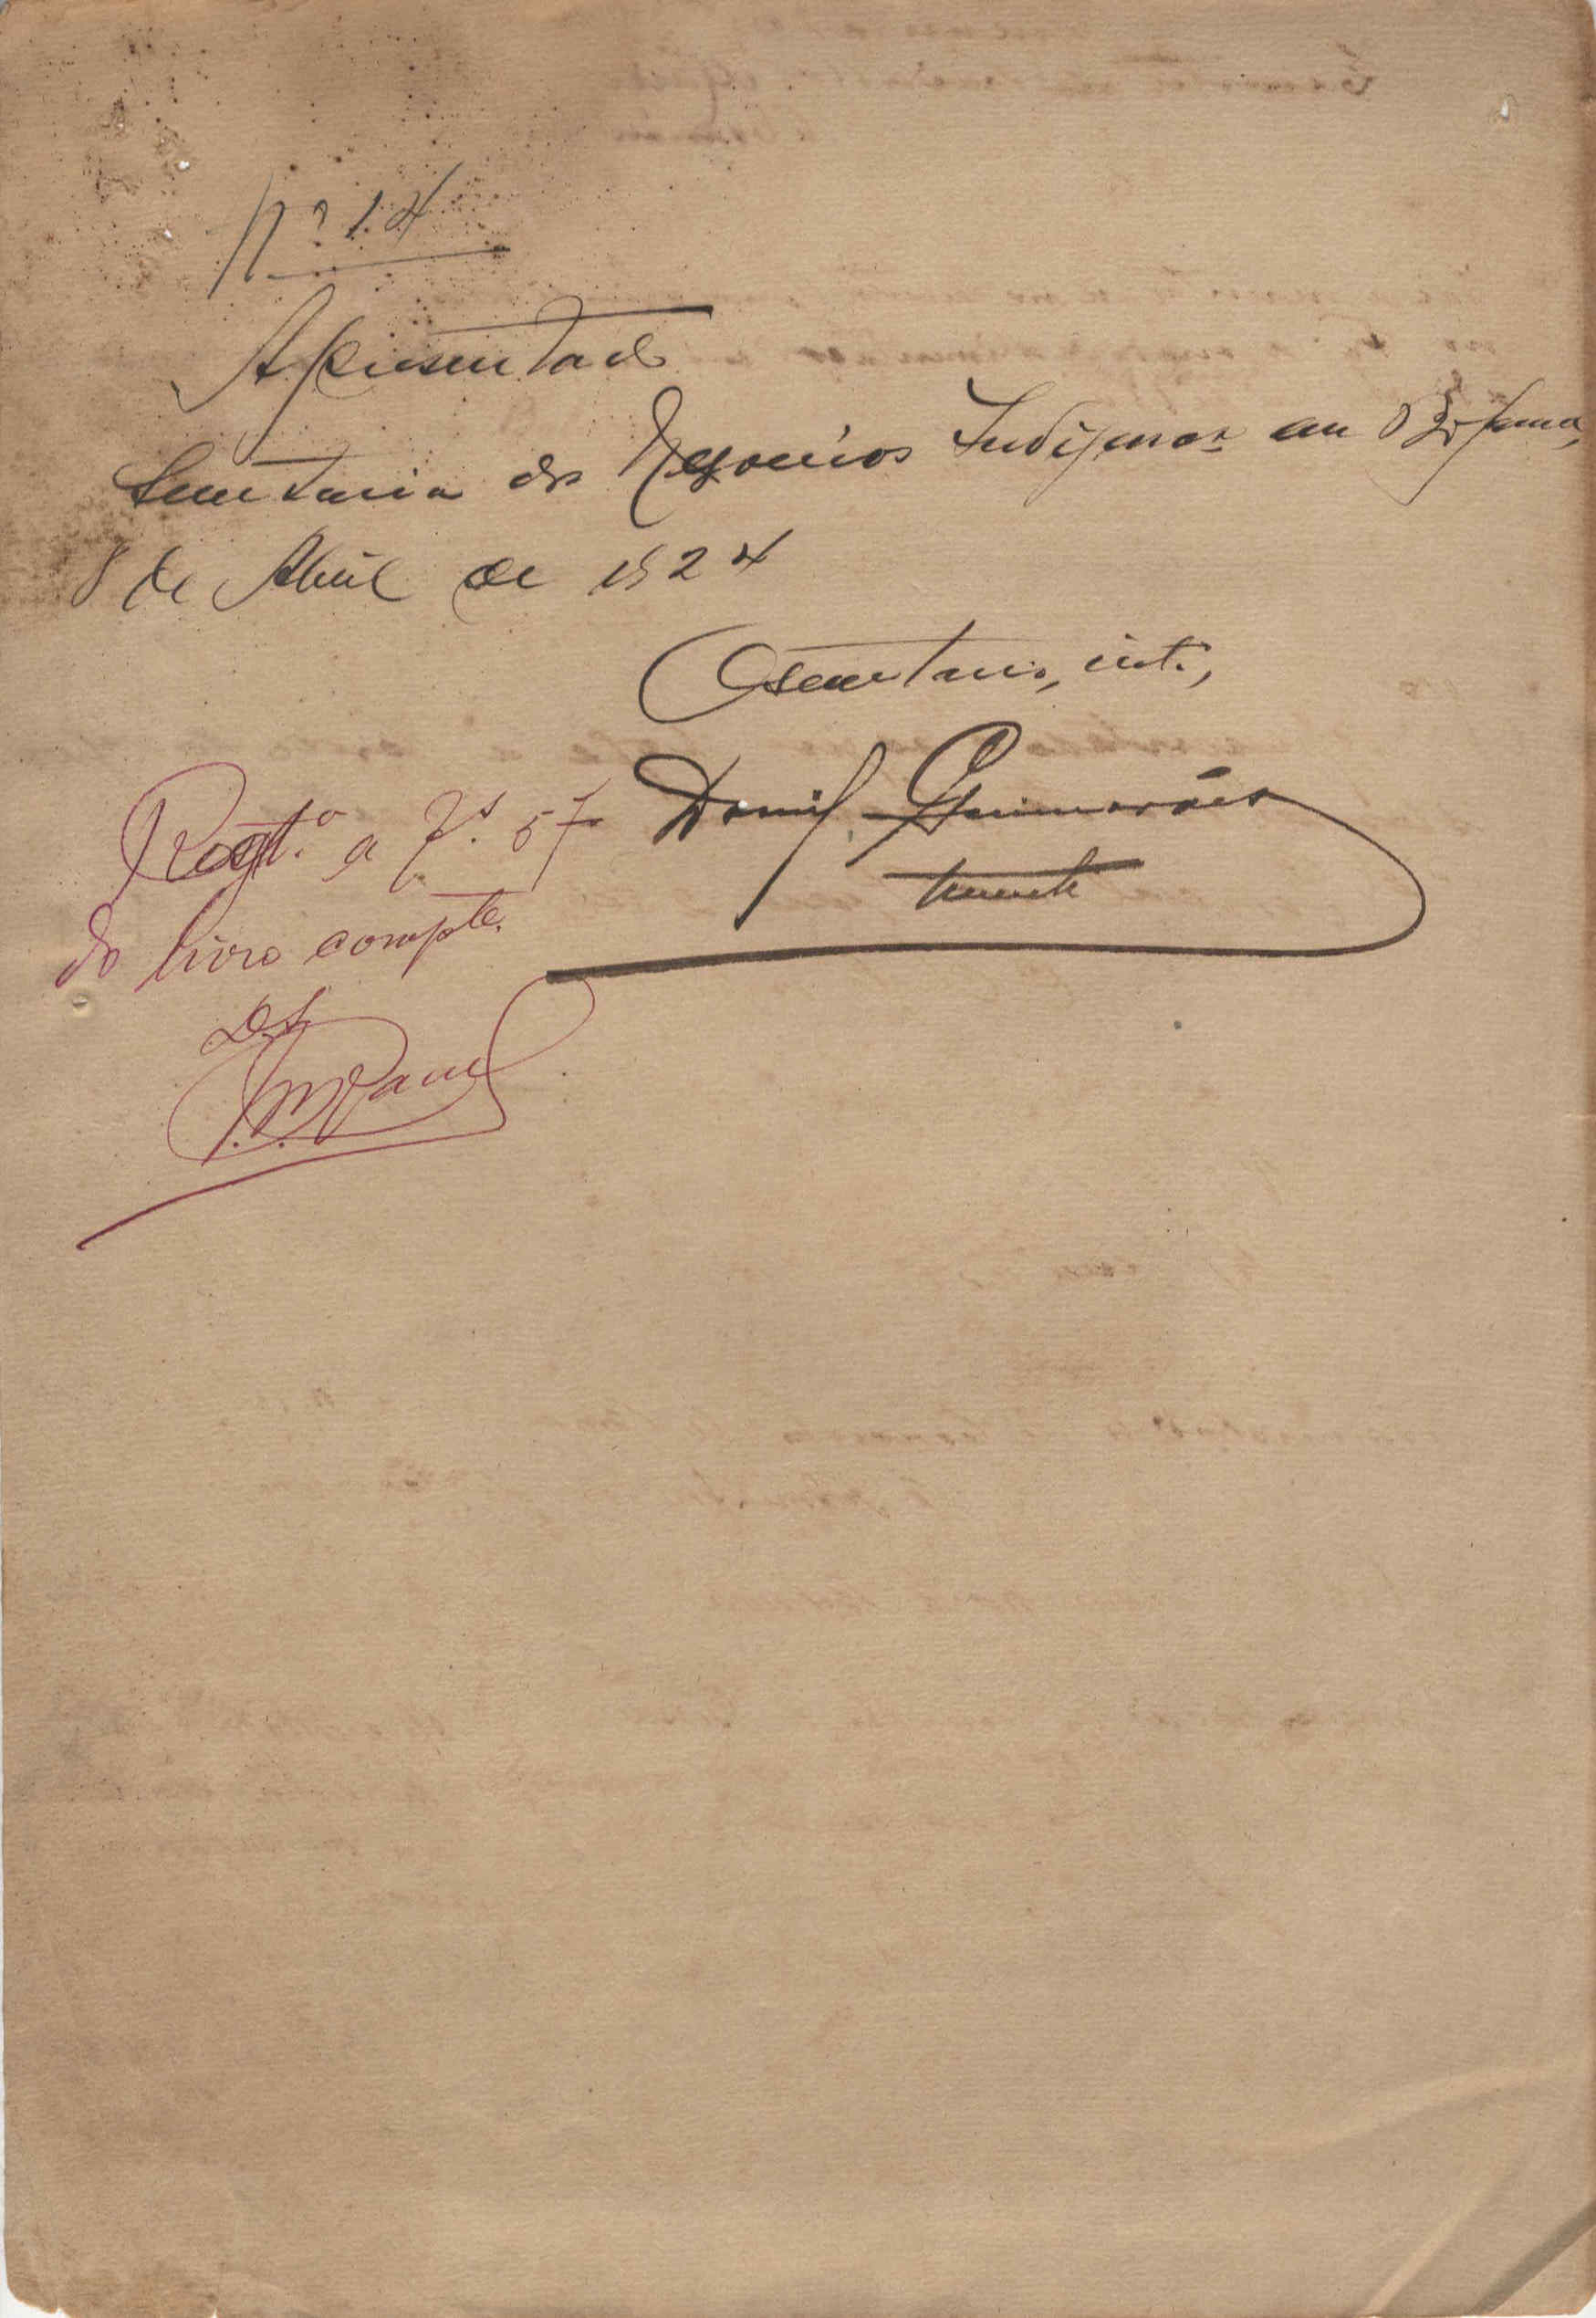 Nº 14
Apresentado
Secretaria dos Negocios Indigenas em Bolama,
8 de Abril de 1924
O secretario, int.,
Guimarães
tenente
Regt.º a f.s 57
do livro compte.